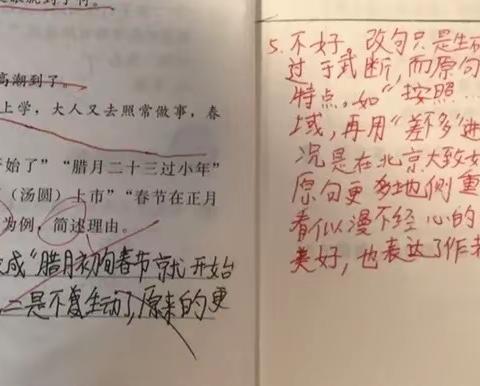 高潮到了。
上学，大人又去照常做事，春
开始了”“腊月二十三过小年”
（汤圆）上市”“春节在正月
为例，简述理由。
成“腊月初旬春节就开始
二是不复生动了，原来的更
5. 不好。改句只是生硬
过于武断，而原句
特点。如“按照…
域，再用“差不多”进
况是在北京大致如
原句更多地侧重
看似漫不经心的
美好，也表达了作者